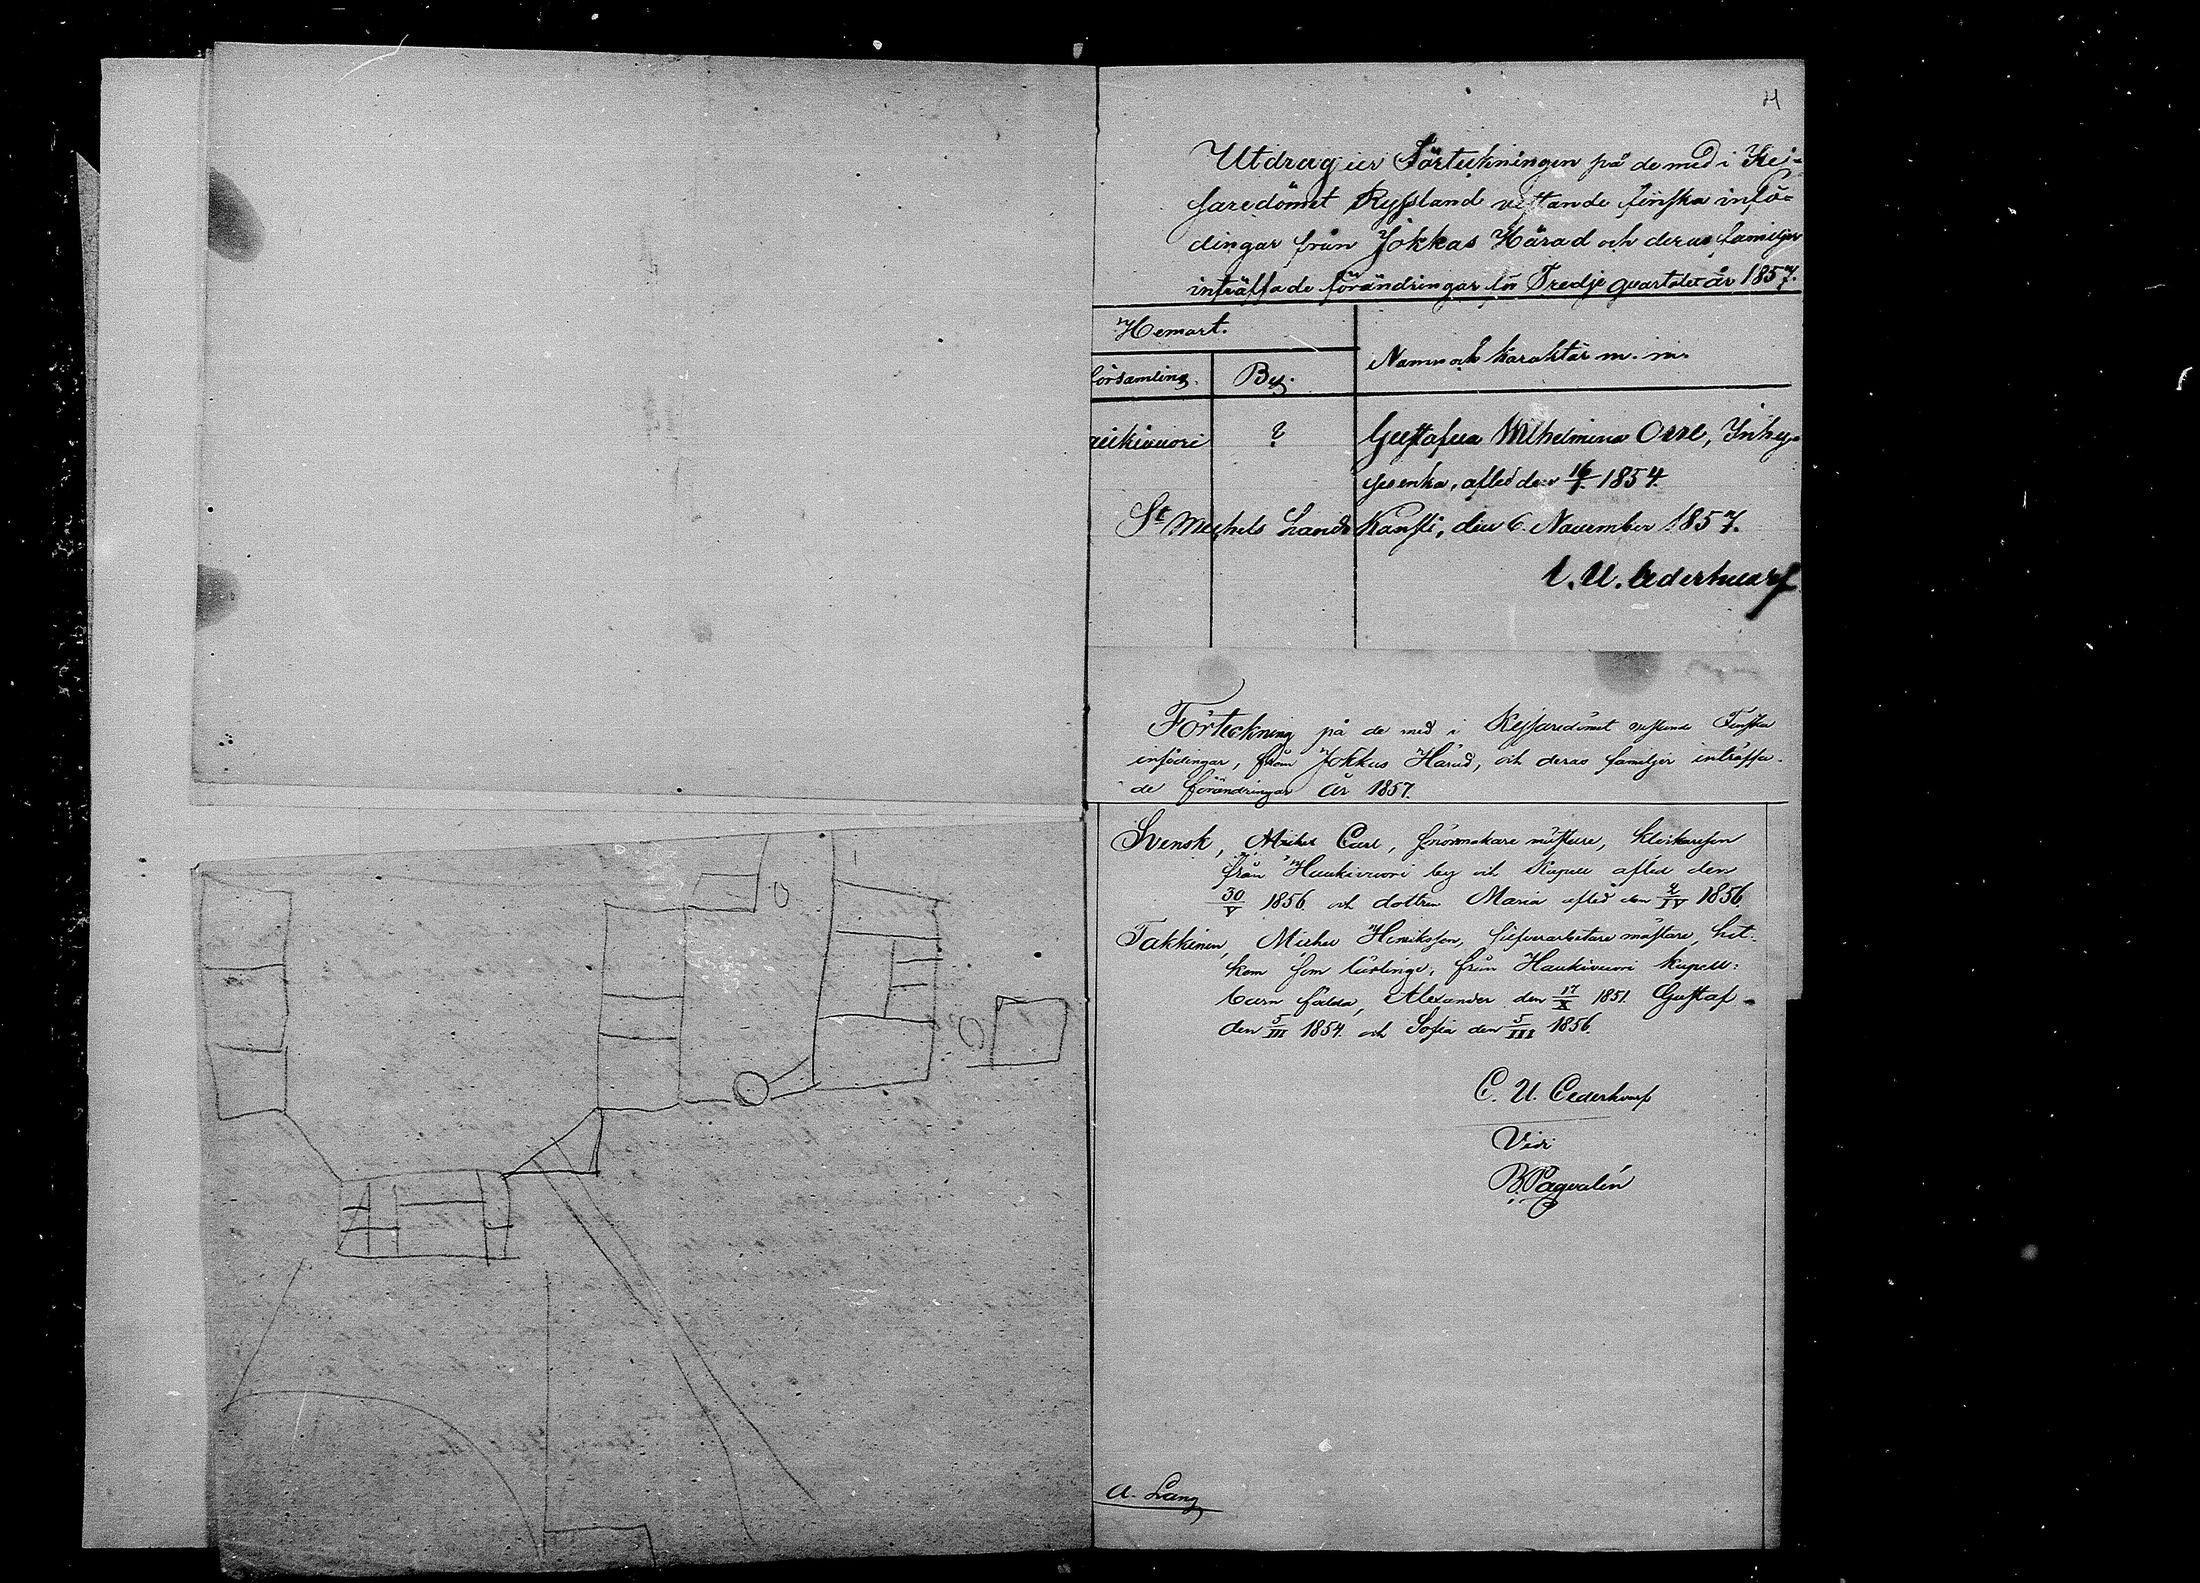 4
Utdrag ur Förteckningen på de med i Kej-
saredömet Ryssland vistande finska infö-
dingar från Jokkas Härad och deras familjer
inträffade förändringar för Tredje quartalet år 1857.
Hemort.
Namn och karaktär m. m.
församling. By.
aukivuori ? Gustafva Wilhelmina Orre, Inhy-
ses enka, afled den 16/7 1854.
St Michels Lands Kansli, den 6 November 1857.
C. U. Cederhvarf
Förteckning på de med i Kejsaredömet vistande Finska
infödingar, från Jokkas Härad, och deras familjer inträffa-
de förändringar År 1857.
Svensk, Michel Carl, snörmakare mästare, klockareson
från Haukivuori by och Kapell afled den
30/V 1856 och dottren Maria afled den 2/IV 1856.
Takkinen, Michel Henriksson, silfverarbetare mästare, hit-
kom som lärlinge, från Haukivuori kapell:
barn födda, Alexander den 17/X 1851. Gustaf
den 5/III 1854. och Sofia den 5/III 1856.
C. U. Cederhvarf
Vidi
B. Pagvalén
A. Lang